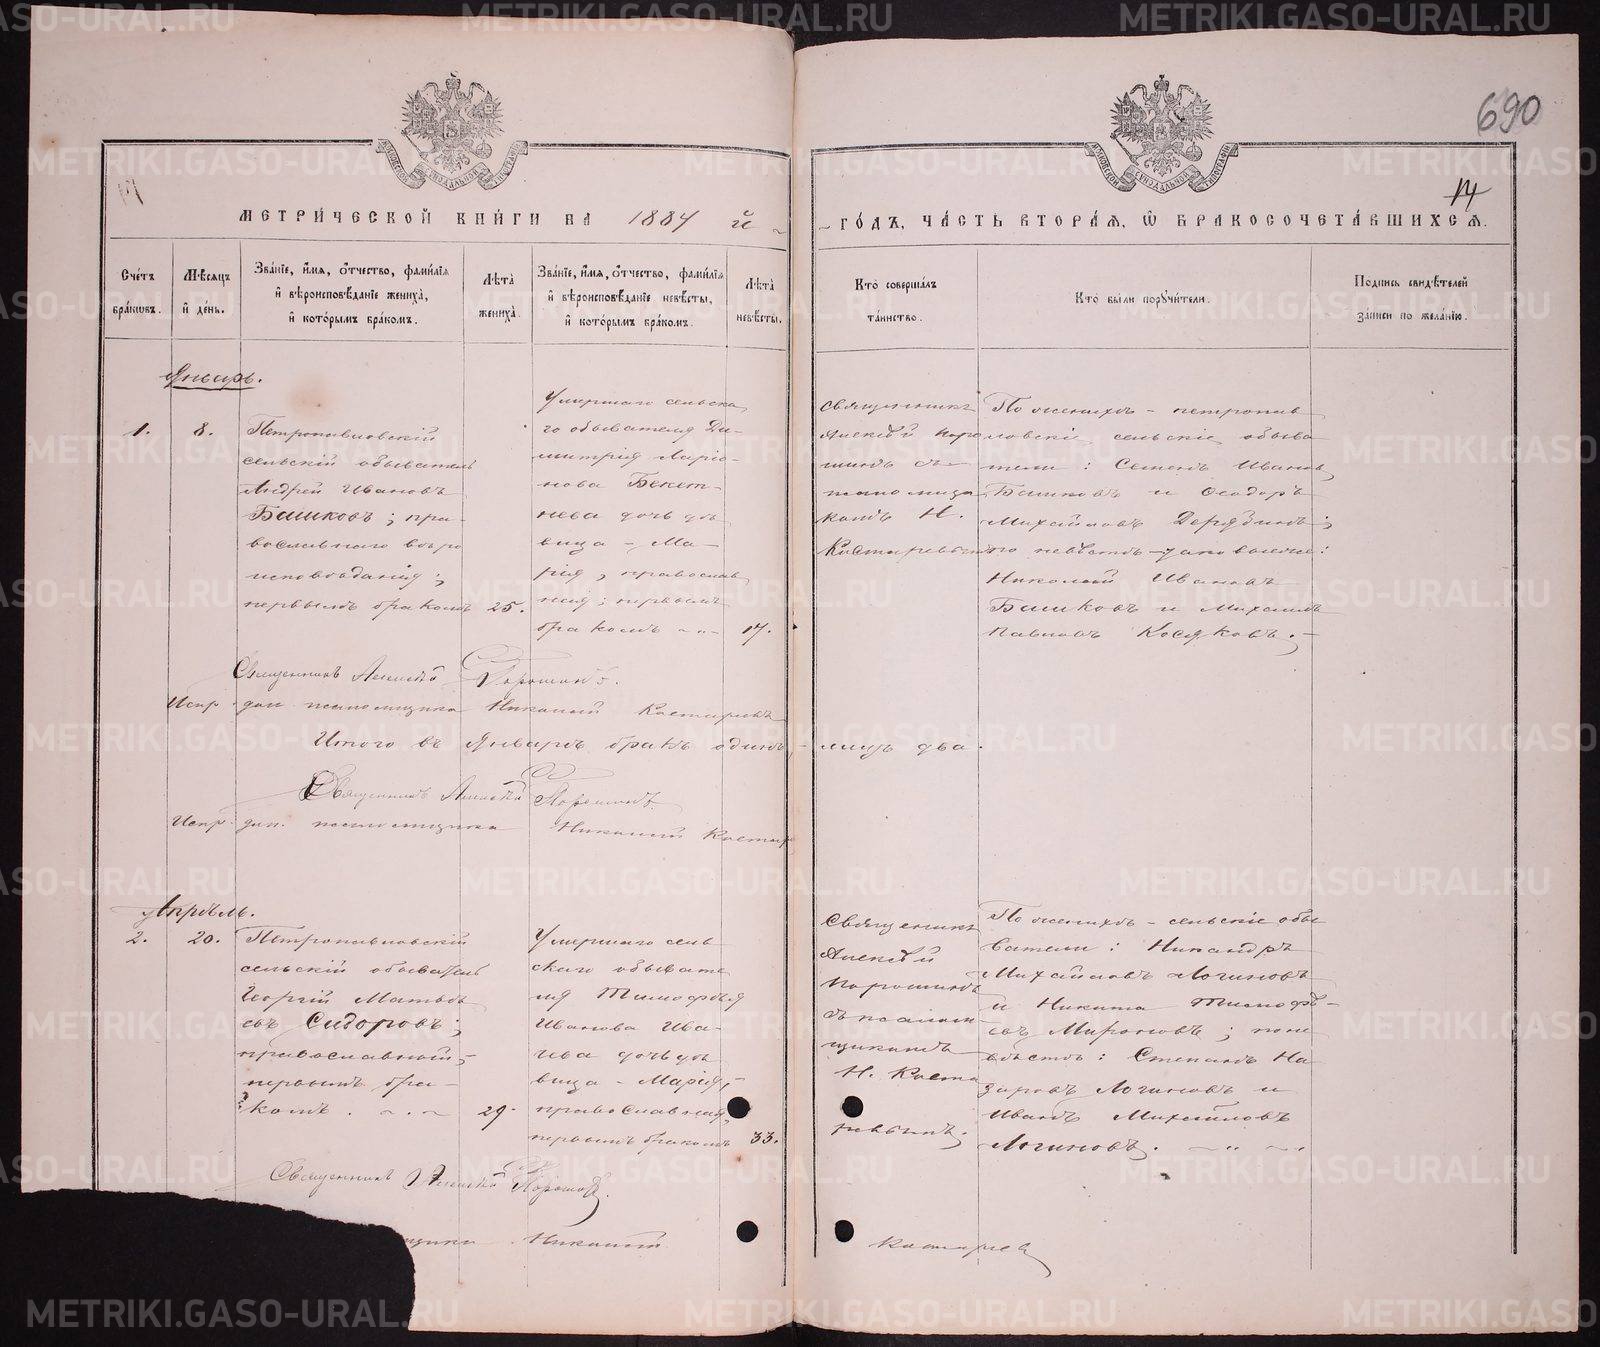 METRIKI.GASO-URAL.RU
690
14
МОСКОВСКОЙ СѴНОДАЛЬНОЙ ТИПОГРАФІИ
МЕТРИ́ЧЕСКОЙ КНИ́ГИ НА 1884 й
ГО́ДЪ, ЧА́СТЬ ВТОРА́Я, Ѡ БРАКОСОЧЕТА́ВШИХСЯ.
Сче́тъ бра́кѡвъ.
Мѣ́сяцъ и де́нь.
Зва́нїе, и́мя, о́тчество, фами́лїя
и вѣроисповѣ́данїе жениха̀,
и кото́рымъ бра́комъ.
Лѣ́та жениха̀.
Зва́нїе, и́мя, о́тчество, фами́лїя
и вѣроисповѣ́данїе невѣ́сты,
и кото́рымъ бра́комъ.
Лѣ́та невѣ́сты.
Кто̀ соверша́лъ
та́инство.
Кто̀ бы́ли порꙋчи́тели.
По́дпись свидѣ́телей
за́писи по жела́нїю.
Январь.
1.
8.
Петропавловскій
сельскій обыватель
Андрей Ивановъ
Башковъ; пра-
вославнаго вѣро
исповѣданія;
первымъ бракомъ
25.
Умершаго сельска
го обывателя Ди-
митрія Ларіо-
нова
дочь дѣ
вица – Ма-
рія, православ
ная; первымъ
бракомъ
17.
Священникъ
Алексѣй Поро
шинъ съ
псаломщи
комъ Н.
Костаревымъ
По женихѣ – петропав
ловскіе сельскіе обыва
тели: Семенъ Ивановъ
Башковъ и Ѳеодоръ
Михайловъ Дерябинъ;
по невѣстѣ –
Николай Ивановъ
Башковъ и Михаилъ
Павловъ Косяковъ.
Священникъ Алексѣй Порошинъ.
Испр. дол. псаломщика Николай Костаревъ
Итого въ Январѣ бракъ одинъ, лицъ два.
Священникъ Алексѣй Порошинъ.
Испр. дол. псаломщика Николай Костар
Апрѣль.
2.
20.
Петропавловскій
сельскій обыватель
Георгій Матвѣе
въ Сидоровъ;
православный,
первымъ бра-
комъ.
29.
Умершаго сель
скаго обывате
ля Тимофѣя
Иванова
дочь дѣ
вица – Марія,
православная,
первымъ бракомъ
33.
Священникъ
Алексѣй
Порошинъ
съ псалом
щикомъ
Н. Коста
ревымъ.
По женихѣ – сельскіе обы
ватели: Никандръ
Михайловъ Логиновъ
и Никита Тимофѣ-
евъ Мироновъ; по не
вѣстѣ: Степанъ На
заровъ Логиновъ и
Иванъ Михайловъ
Логиновъ.
Священникъ Алексѣй Порошинъ.
щика Николай
Костарев